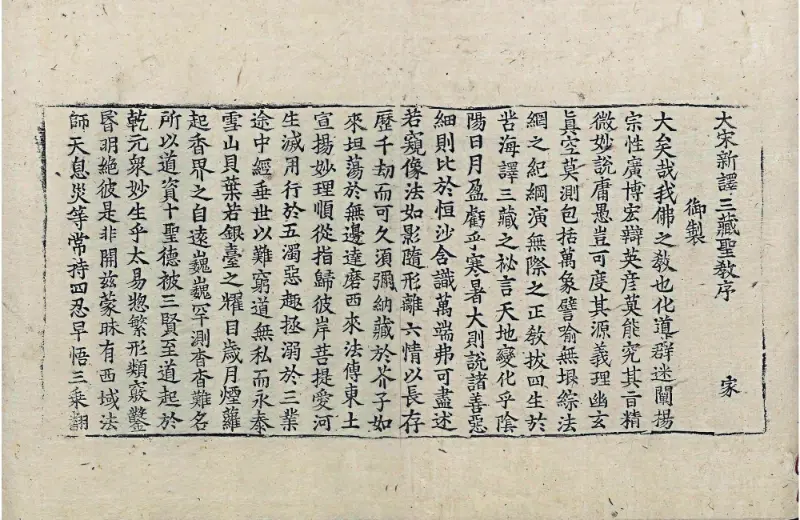 大宋新譯三藏聖教序
御製
家
大矣哉我佛之教也化導群迷闡揚
宗性廣博宏辯英彦莫能究其旨精
微妙說庸愚豈可度其源義理幽玄
真空莫測包括萬象譬喻無垠綜法
網之紀綱演無際之正教拔四生於
苦海譯三藏之祕言天地變化乎陰
陽日月盈虧乎寒暑大則說諸善惡
細則比於恒沙含識萬端弗可盡述
若窺像法如影隨形離六情以長存
歷千劫而可久須彌納藏於芥子如
來坦蕩於無邊達磨西來法傳東土
宣揚妙理順從指歸彼岸菩提愛河
生滅用行於五濁惡趣拯溺於三業
途中經垂世以難窮道無私而永泰
雪山貝葉若銀臺之耀目歲月煙蘿
起香界之自遠巍巍罕測杳杳難名
所以道資十聖德被三賢至道起於
乾元衆妙生乎太易惣繁形類竅鑿
昬明絶彼是非開兹蒙昧有西域法
師天息災等常持四忍早悟三乘翻